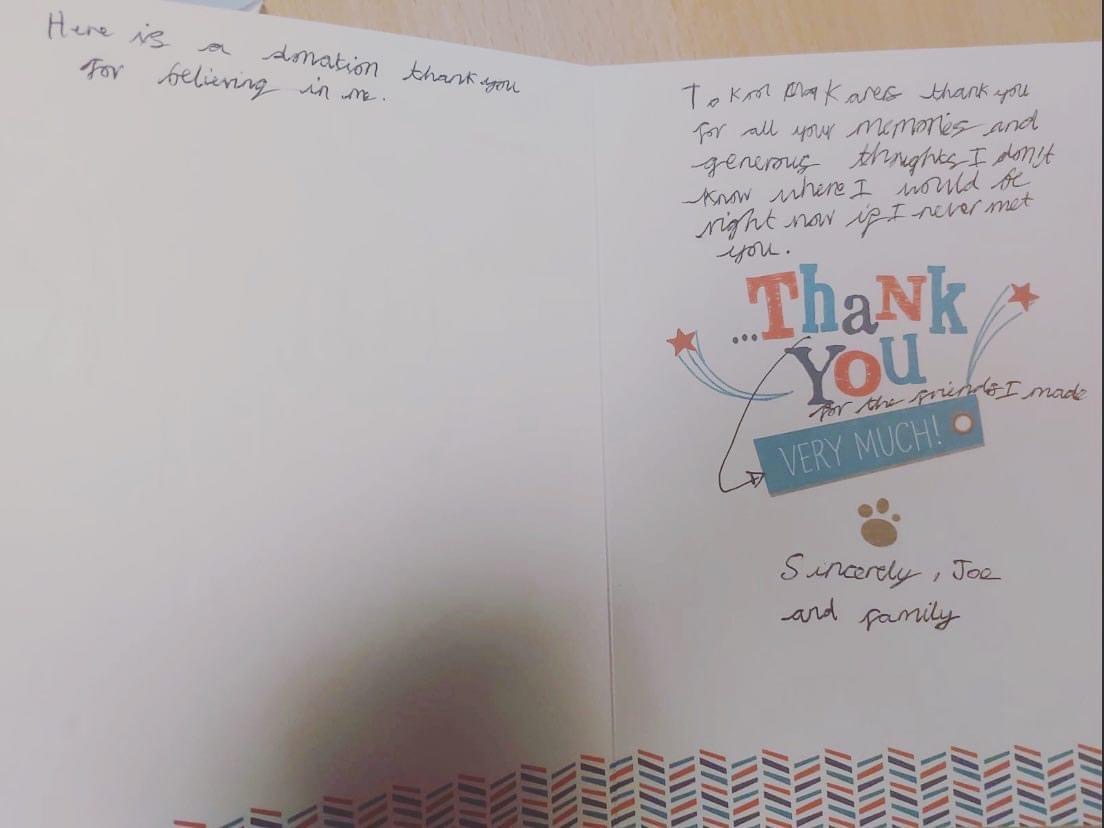 Here is a donation thank you
for believing in me.
To Kares thank you
for all your memories and
generous thoughts I don't
know where I would be
right now if I never met
you.
...Thank
You
for the friends I made
VERY MUCH!
Sincerely, Joe
and family